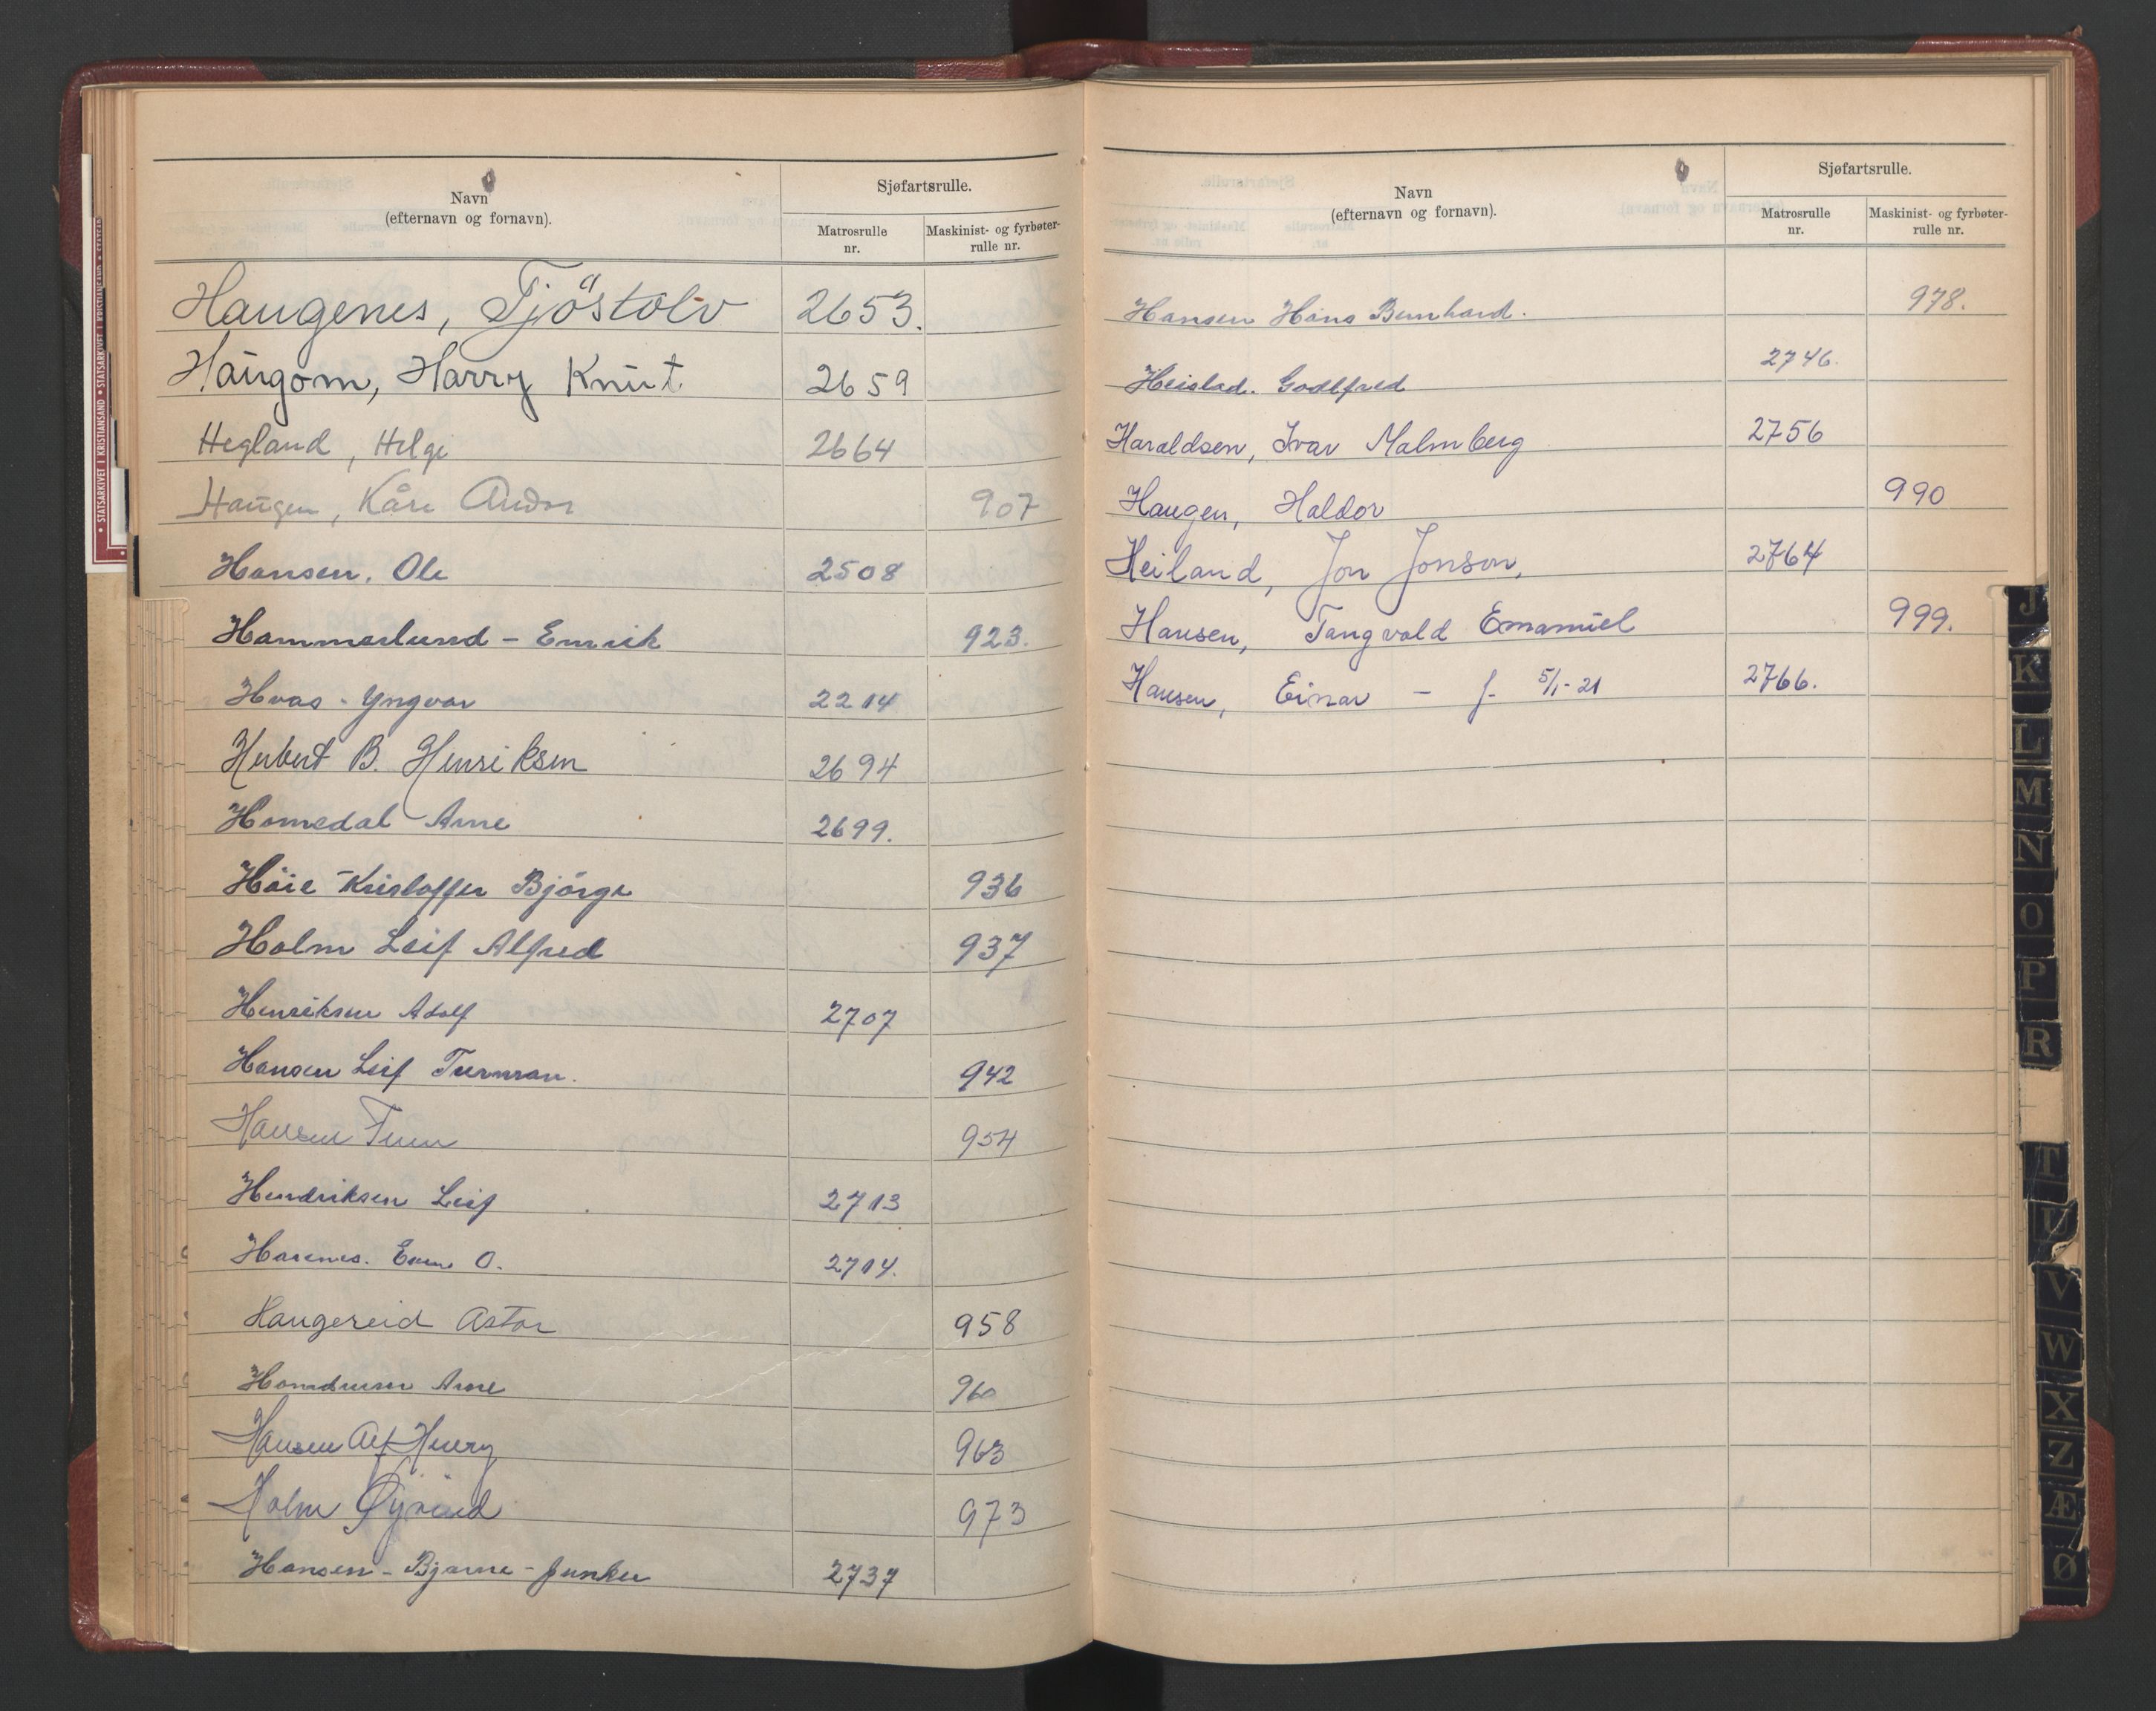 Navn
(efternavn og fornavn).
Sjøfartsrulle.
Matrosrulle
nr.
Maskinist- og fyrbøter-
rulle nr.
Haugenes, Tjöstolv 2653.
Haugom, Harry Knut. 2659
Hegland, Helge 2664
Haugen, Kåre Andor 907
Hansen. Ole 2508
Hammerlund - Enrik 923.
Hvas - Yngvar 2214
Herbert B. Henriksen 2694
Homedal Arne 2699.
Höie Kristoffer Björge 936
Holm Leif Alfred 937
Henriksen Adolf 2707
Hansen Leif 942
Hansen 954
Hendriksen Leif 2713
O. 2714.
Haugereid Astor 958
Arne 960
Hansen Alf Henry 963
Holm Øyvind 973
Hansen - Bjarne - Junker 2737
Navn
(efternavn og fornavn).
Sjøfartsrulle.
Matrosrulle
nr.
Maskinist- og fyrbøter-
rulle nr.
Hansen Hans Bernhard. 978.
Heislad. Godtfred 2746.
Haraldsen, Ivar Malmberg 2756
Haugen, Haldor 990
Heiland, Jon Jonson, 2764
Hansen, Tangvald Emanuel 999.
Hansen, Einar - f. 5/1-21 2766.
STATSARKIVET I KRISTIANSAND • STATSARKIVET I KRISTIANSAND
J
K
L
M
N
O
P
R
T
U
V
W
X
Z
Æ
Ø